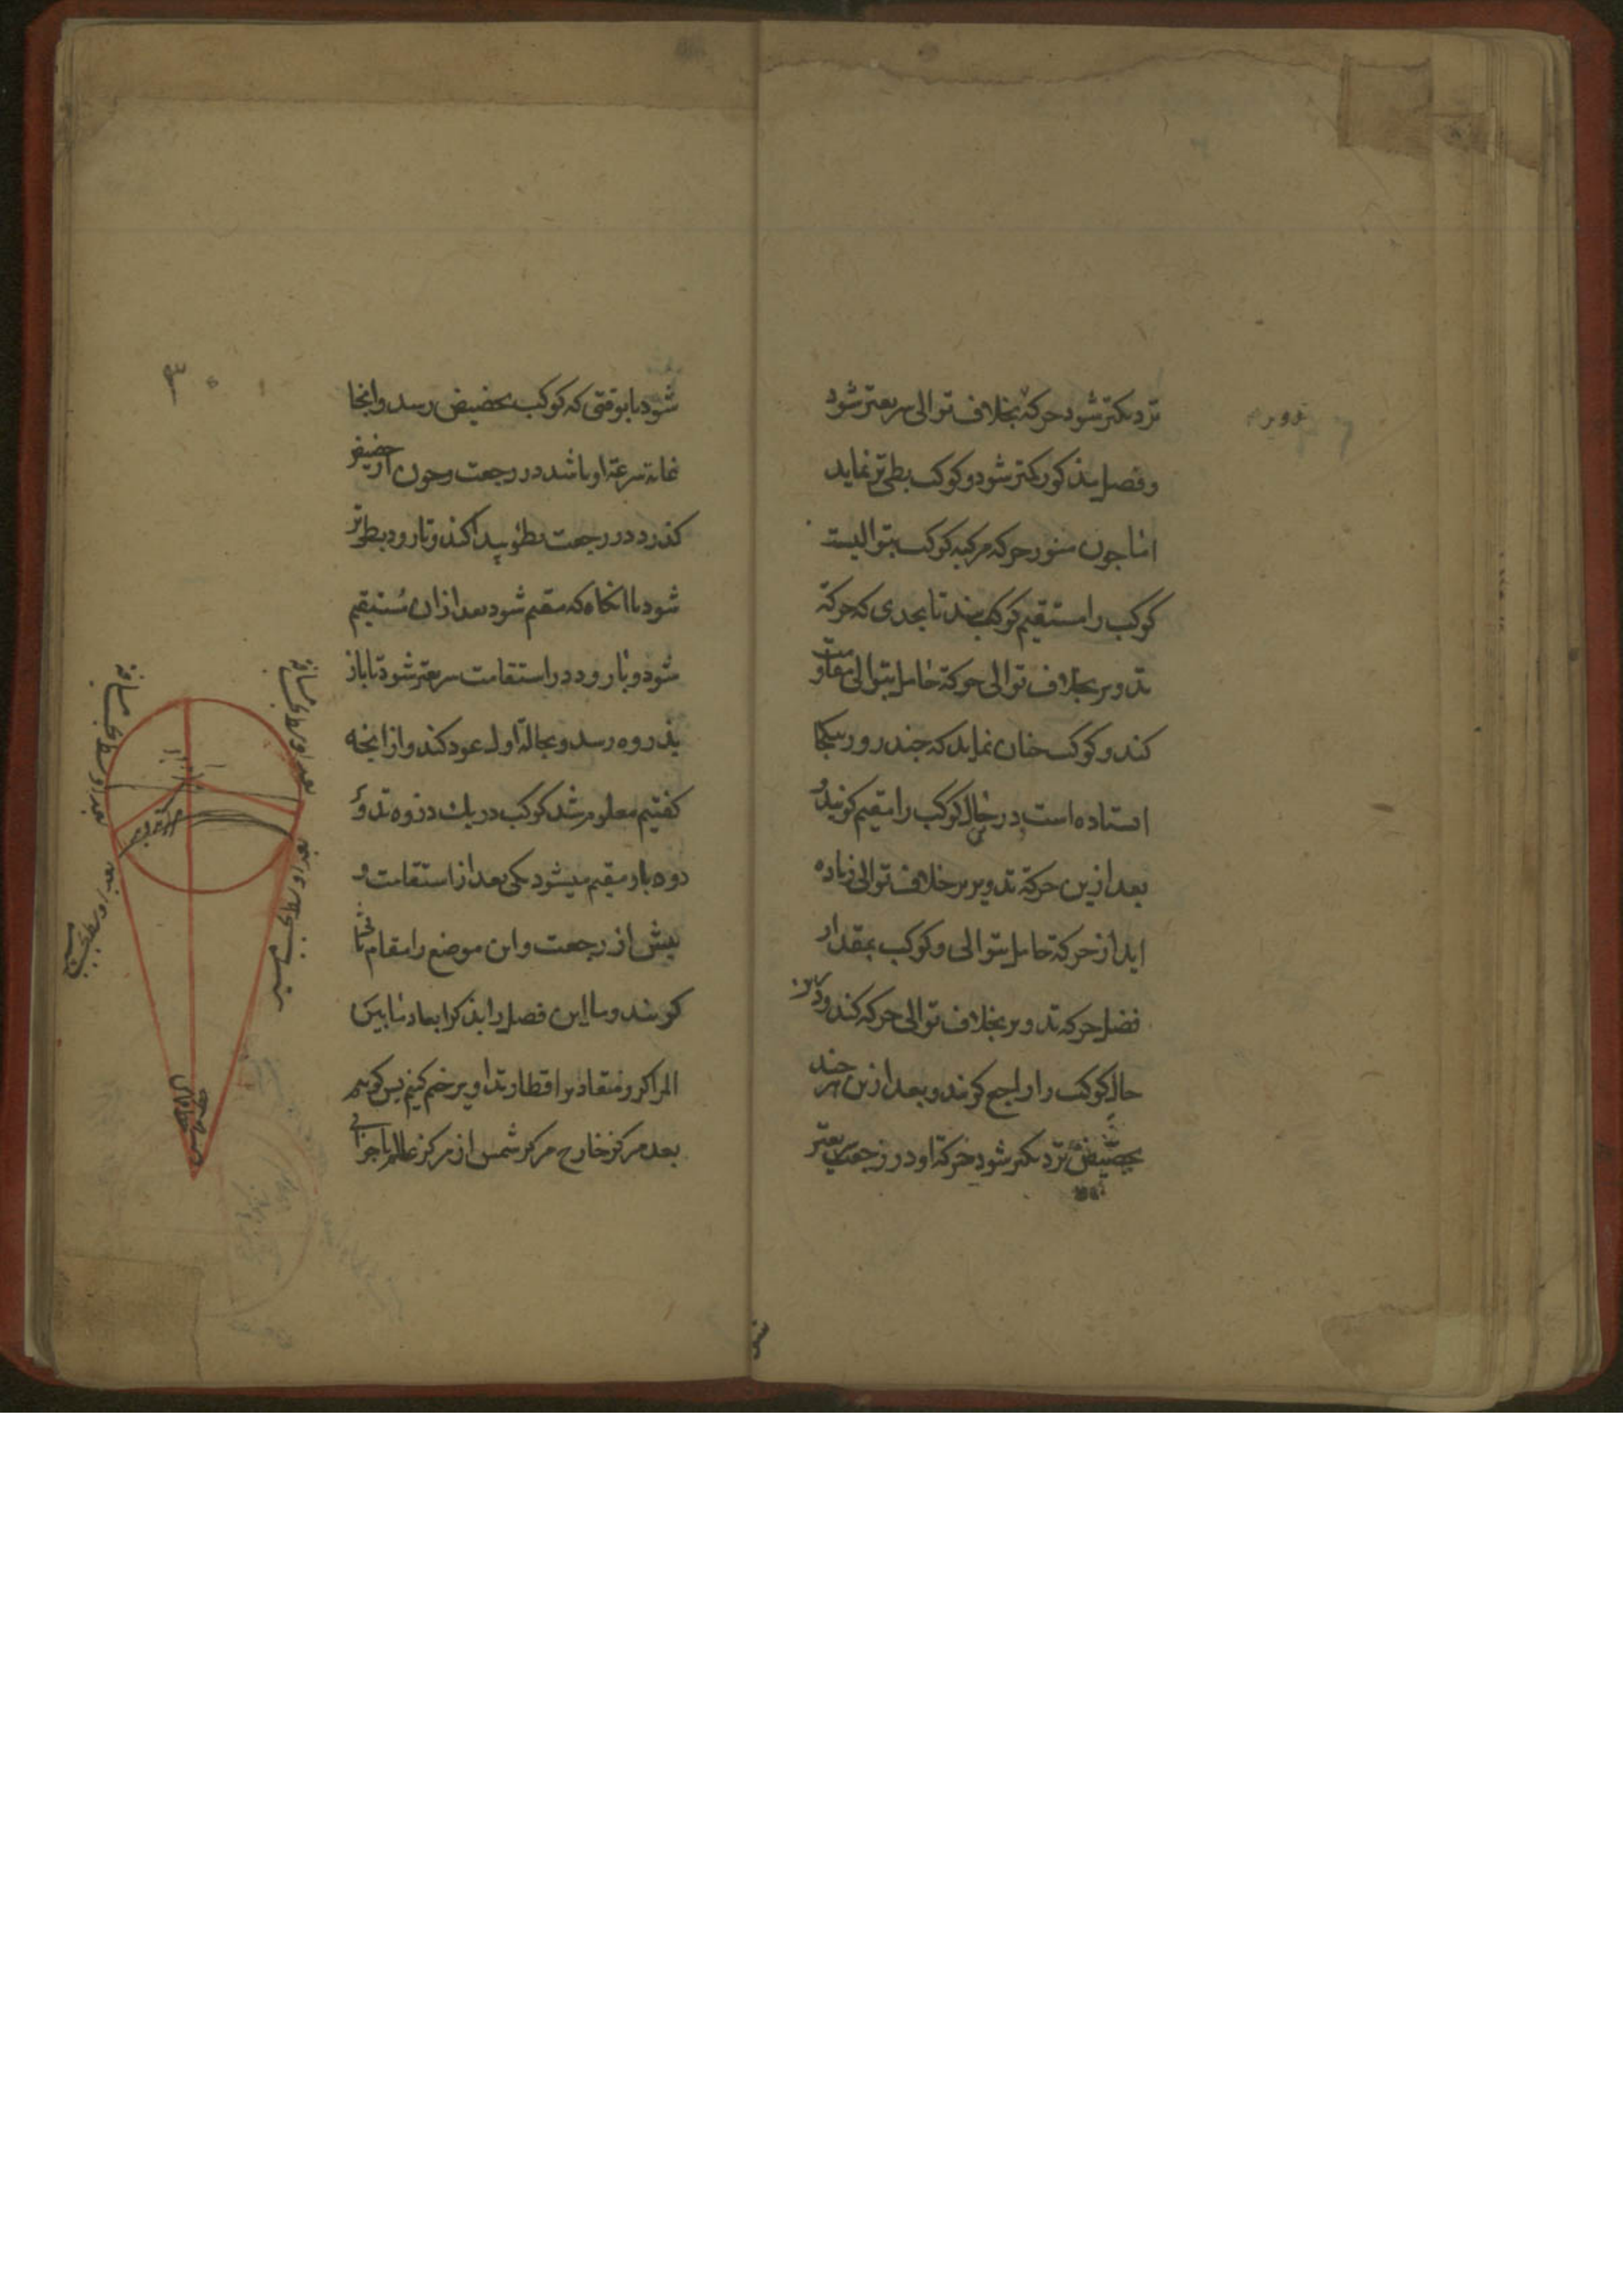 نزدیکتر شود حرکة بخلاف توالی سریعتر شود
و فصل مذکور کمتر شود و کوکب بطی تر نماید
اما چون هنوز حرکه مرکبه کوکب بتوالیست
کوکب را مستقیم کوکب بیند تا بحدی که حرکة
تدویر بخلاف توالی حرکة حامل بتوالی مقاومت
کند و کوکب جنان نماید که جند روز بیکجا
استاده است در حال کوکب را مقیم کویند و
بعد ازین حرکة تدویر بر خلاف توالی زیاده
اید از حرکة حامل بتوالی و کوکب بمقدار
فضل حرکه تدویر بخلاف توالی حرکه کند و درین
حال کوکب را راجع کویند و بعد ازین هر جند
بحضیض نزدیکتر شود حرکة او در رجعت سریعتر
تدویر
۳۰
شود تا بوقتی که کوکب بحضیض رسد و انجا
غایة سرعة او باشد در رجعت و چون از حضیض
کذرد در رجعت بطؤ پیدا کند و تا رود بطی تر
شود تا انکاه که مقیم شود بعد ازان مستقیم
شود و تا رود در استقامت سریعتر شود تا باز
بذروه رسد و بحالة اول عود کند و از انچه
کفتیم معلوم شد کوکب در یک دروه تدویر
دو بار مقیم میشود یکی بعد از استقامت و
بیش از رجعت و این موضع را مقام
کویند و ما این فصل را بذکر ابعاد مابین
المراکز و مقادیر اقطار تداویر ختم کنیم بس کوییم
بعد مرکز خارج مرکز شمس از مرکز عالم باجزائی
بعد اوسط بحسب مسافة
بعد اوسط بحسب مسافة
مرکز تدویر
بعد اوسط بحسب مسیر
بعد اوسط بحسب مسیر